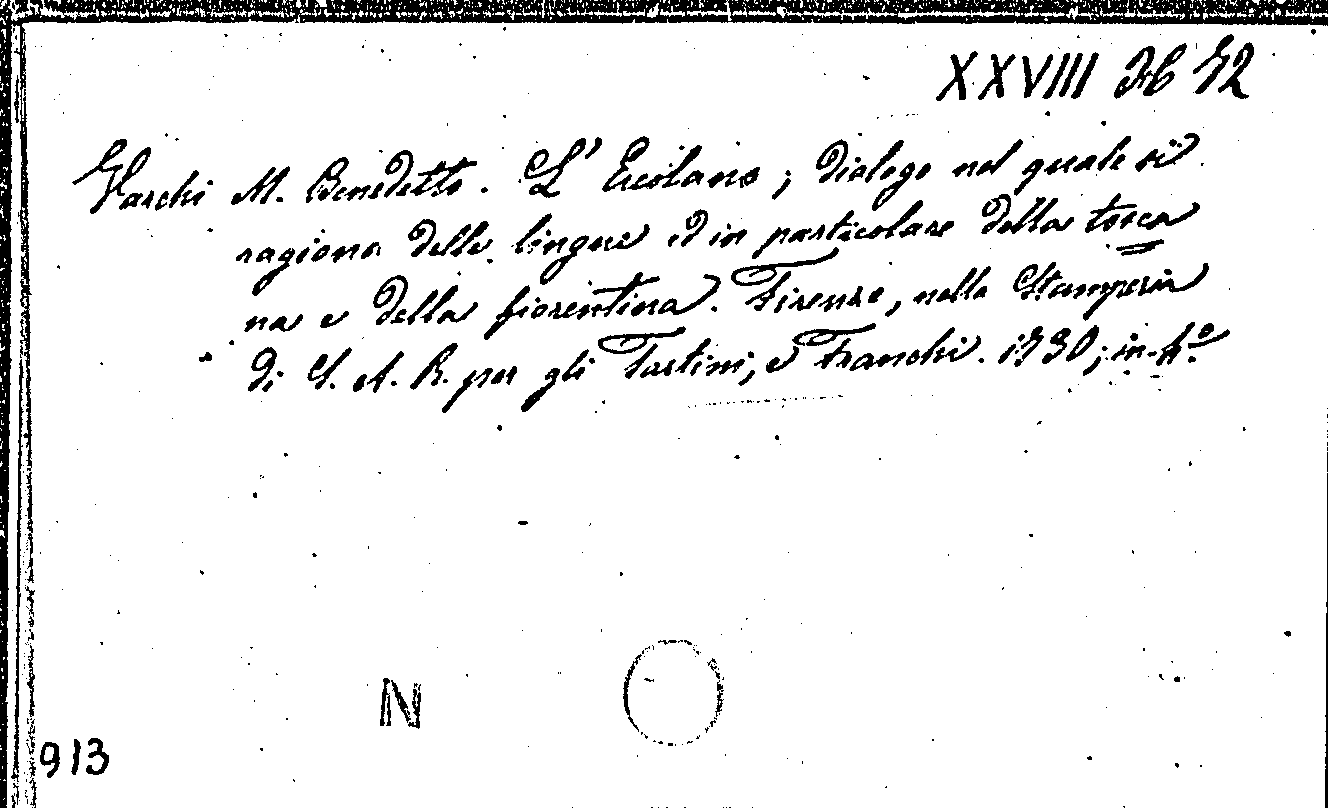 XXVIII H 42
Varchi M. Benedetto. L' Ercolano; dialogo nel quale si
ragiona delle lingue ed in particolare della tosca
na e della fiorentina. Firenze, nella Stamperia
di S. A. R. per gli Tartini, e Franchi. 1730; in-4º.
N
913